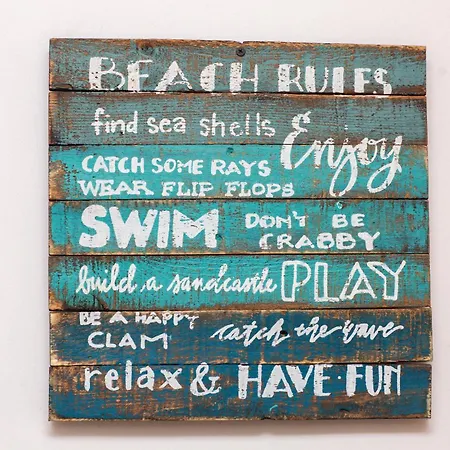 BEACH RULES
find sea shells Enjoy
CATCH SOME RAYS
WEAR FLIP FLOPS
SWIM DON'T BE CRABBY
build a sandcastle PLAY
BE A HAPPY CLAM catch the wave
relax & HAVE·FUN